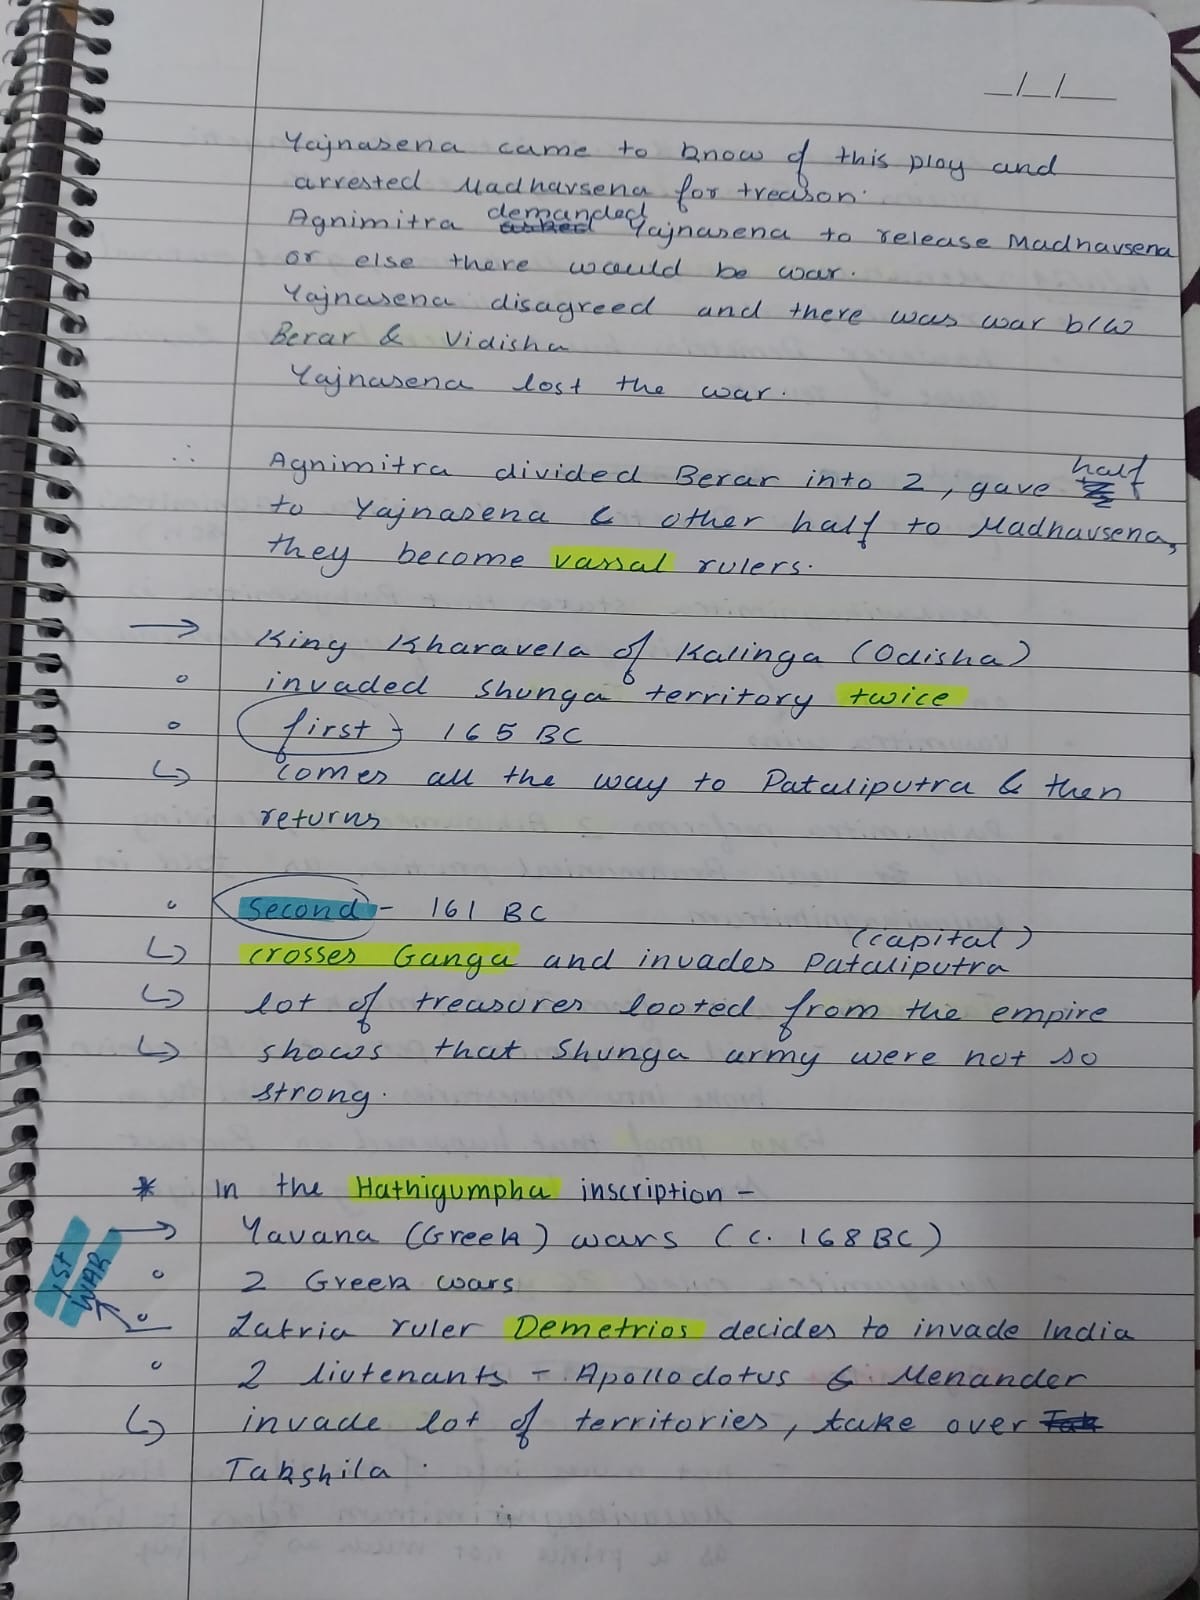 _/_/__
Yajnasena came to know of this ploy and
arrested Madhavsena for treason.
Agnimitra asked demanded Yajnasena to release Madhavsena
or else there would be war.
Yajnasena disagreed and there was war b/w
Berar & Vidisha
Yajnasena lost the war.
∴ Agnimitra divided Berar into 2, gave half
to Yajnasena & other half to Madhavsena,
they become vassal rulers.
→ King Kharavela of Kalinga (Odisha)
° invaded Shunga territory twice
° first - 165 BC
↳ comes all the way to Pataliputra & then
returns
° Second - 161 BC
(capital)
↳ crosses Ganga and invades Pataliputra
↳ lot of treasures looted from the empire
↳ shows that Shunga army were not so
strong.
* In the Hathigumpha inscription -
→ Yavana (Greek) wars (c. 168 BC)
1st
WAR
° 2 Greek wars
° Zatria ruler Demetrios decides to invade India
° 2 liutenants - Apollodotus & Menander
↳ invade lot of territories, take over Tak
Takshila.